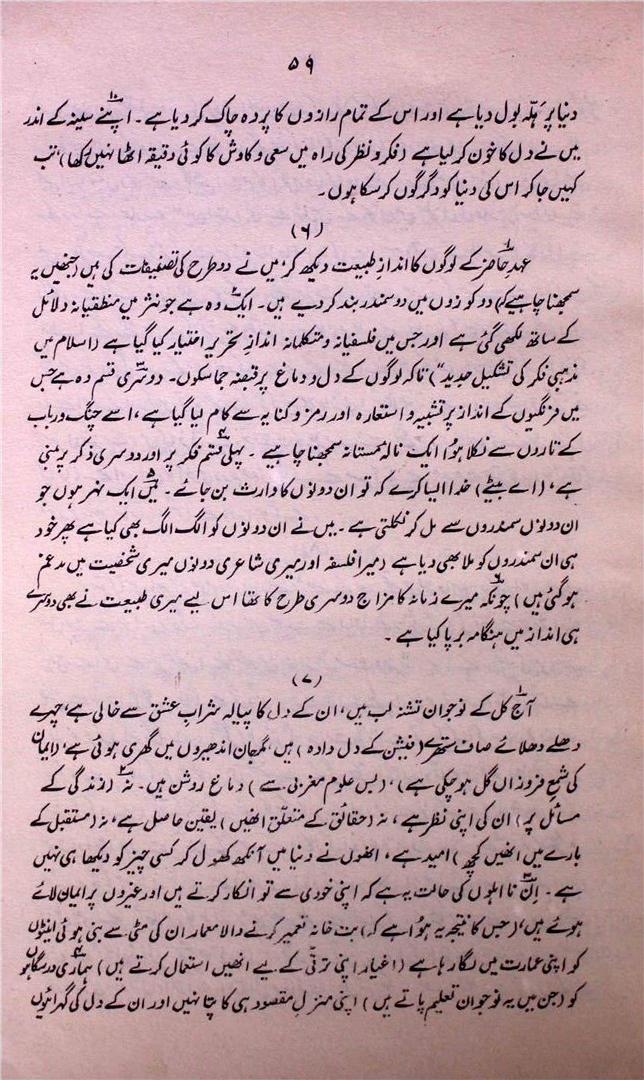 ۵۹
دنیا پر ہلّہ بول دیا ہے اور اس کے تمام رازوں کا پردہ چاک کر دیا ہے ۔ اپنے۱۰ سینہ کے اندر
میں نے دل کا خون کر لیا ہے (فکر و نظر کی راہ میں سعی و کاوش کا کوئی دقیقہ اٹھا نہیں رکھا)، تب
کہیں جا کر اس کی دنیا کو دگرگوں کر سکا ہوں ۔
(۶)
عہدِ حاضر۱ کے لوگوں کا اندازِ طبیعت دیکھ کر، میں نے دو طرح کی تصنیفات کی ہیں (جنھیں یہ
سمجھنا چاہیے کہ) دو کوزوں میں دو سمندر بند کر دیے ہیں ۔ ایک۲ وہ ہے جو نثر میں منطقیانہ دلائل
کے ساتھ لکھی گئی ہے اور جس میں فلسفیانہ و متکلمانہ اندازِ تحریر اختیار کیا گیا ہے (اسلام میں
مذہبی فکر کی تشکیل جدید") تاکہ لوگوں کے دل و دماغ پر قبضہ جما سکوں ۔ دوسری۳ قسم وہ ہے جس
میں فرنگیوں کے انداز پر تشبیہ و استعارہ اور رمز و کنایہ سے کام لیا گیا ہے ، اسے چنگ و رباب
کے تاروں سے نکلا ہوا ایک نالہ مستانہ سمجھنا چاہیے ۔ پہلی۴ قسم فکر پر اور دوسری ذکر پر مبنی
ہے ، (اے بیٹے) خدا ایسا کرے کہ تو ان دونوں کا وارث بن جائے ۔ میں۵ ایک نہر ہوں جو
ان دونوں سمندروں سے مل کر نکلتی ہے ۔ میں نے ان دونوں کو الگ الگ بھی کیا ہے پھر خود
ہی ان سمندروں کو ملا بھی دیا ہے (میرا فلسفہ اور میری شاعری دونوں میری شخصیت میں مدغم
ہو گئی ہیں) چونکہ۶ میرے زمانہ کا مزاج دوسری طرح کا تھا اس لیے میری طبیعت نے بھی دوسرے
ہی انداز میں ہنگامہ برپا کیا ہے ۔
(۷)
آج۱ کل کے نوجوان تشنہ لب ہیں، ان کے دل کا پیالہ شرابِ عشق سے خالی ہے، چہرے
دھلے دھلائے صاف ستھرے (فیشن کے دل دادہ) ہیں، مگر جان اندھیروں میں گھری ہوئی ہے، (ایمان
کی شمعِ فروزاں گل ہو چکی ہے)، (بس علومِ مغربی سے) دماغ روشن ہیں ۔ نہ۲ (زندگی کے
مسائل پر) ان کی اپنی نظر ہے ، نہ (حقائق کے متعلق انھیں) یقین حاصل ہے، نہ (مستقبل کے
بارے میں انھیں کچھ) امید ہے ، انھوں نے دنیا میں آنکھ کھول کر کسی چیز کو دیکھا ہی نہیں
ہے ۔ اِن۳ نااہلوں کی حالت یہ ہے کہ اپنی خودی سے تو انکار کرتے ہیں اور غیروں پر ایمان لائے
ہوئے ہیں، (جس کا نتیجہ یہ ہوا ہے کہ) بت خانہ تعمیر کرنے والا معمار ان کی مٹی سے بنی ہوئی اینٹوں
کو اپنی عمارت میں لگا رہا ہے (اغیار اپنی ترقی کے لیے انھیں استعمال کرتے ہیں) ہماری۴ درسگاہوں
کو (جن میں یہ نوجوان تعلیم پاتے ہیں) اپنی منزلِ مقصود ہی کا پتا نہیں اور ان کے دل کی گہرائیوں